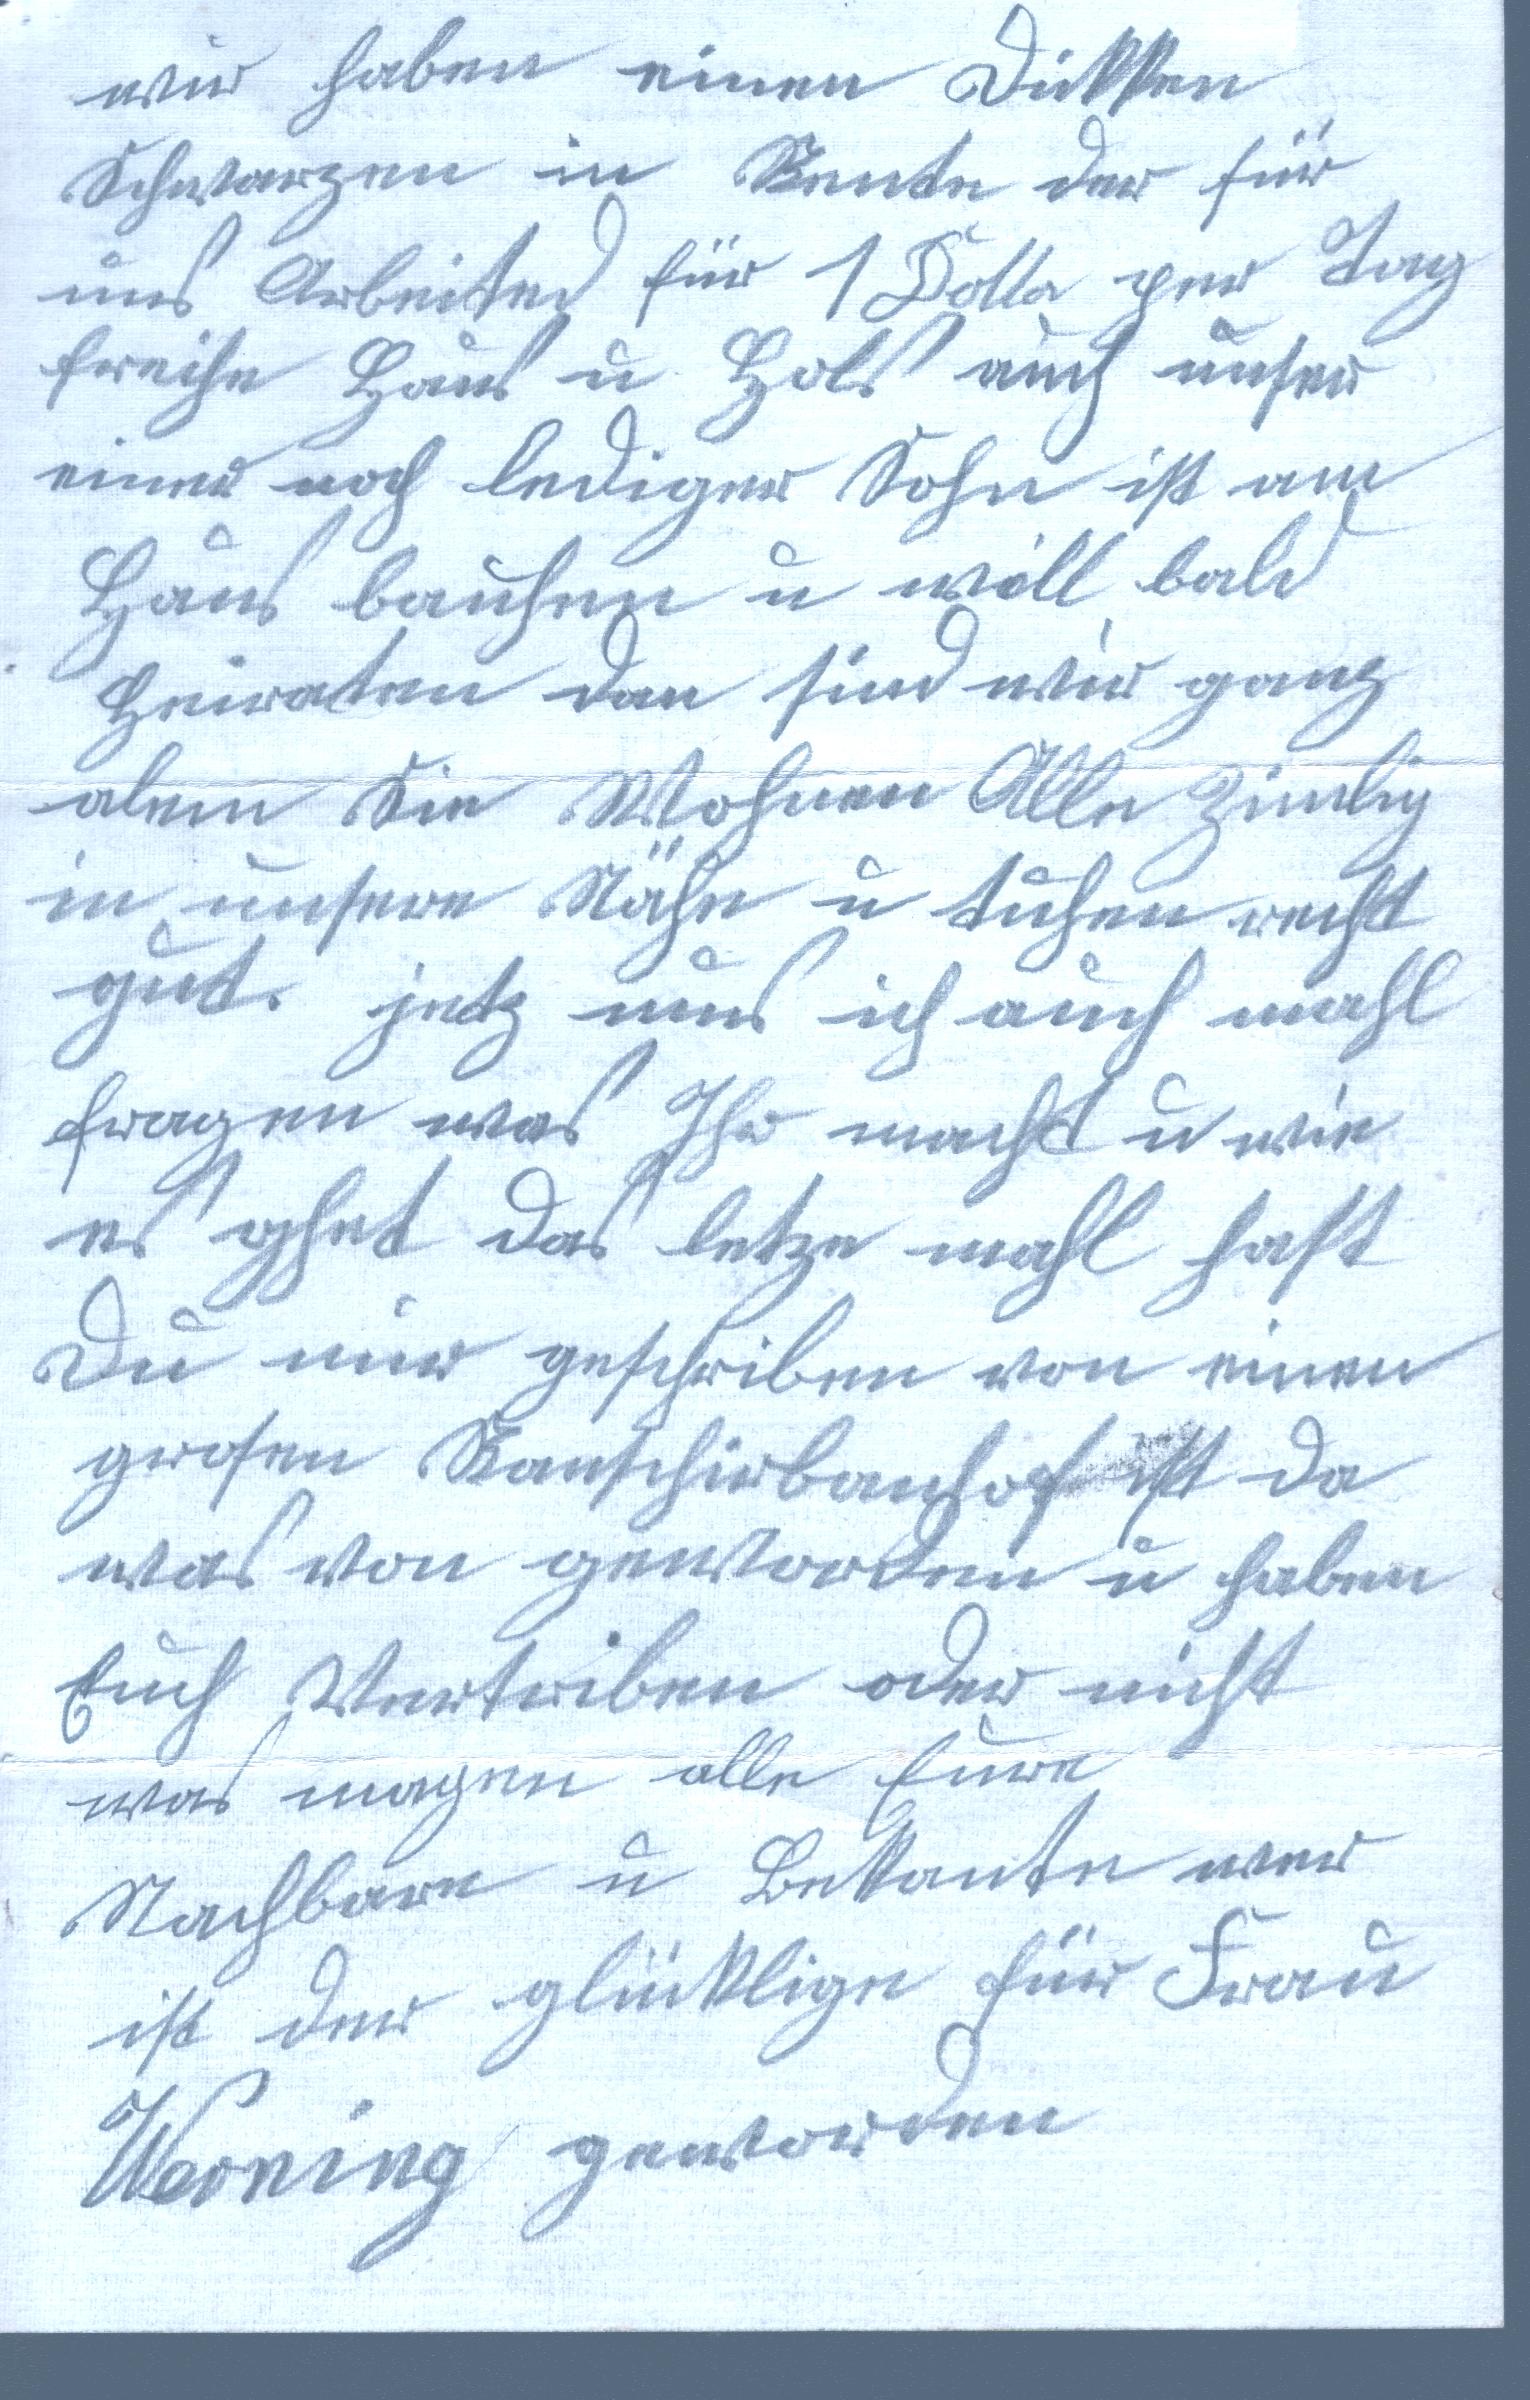 wir haben einen Dikken
Schwarzen in Rente der für
uns Arbeited für 1 Dolla per Tag
freihe Haus u Hols auch unser
einer noch lediger Sohn ist am
Haus bauhen u will bald
Heiraten dan sind wir ganz
alein Sie Wohnen Alle Zimlig
in unsere Nähe u tuhen recht
gut. jetz mus ich auch mahl
fragen was Ihr macht u wie
es ghet das letze mahl hast
Du mir geschriben von einen
grosen Ranschirbanhof ist da
was von geworden u haben
Euch Vertriben oder nicht
was magen alle Eure
Nachbare u Bekante wer
ist der glüklige für Frau
Werning geworden